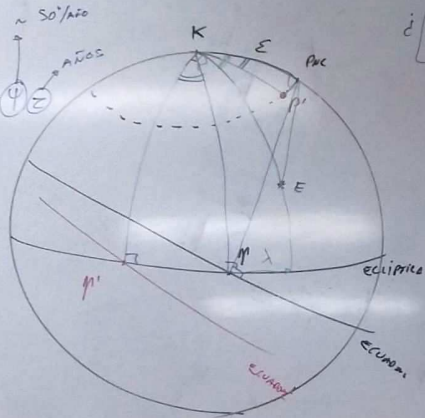 ~ 50"/AÑO
AÑOS
ψ τ
¿
K
ε
PNC
P'
E
γ
λ
γ'
ECLÍPTICA
ECUADOR
ECUADOR'